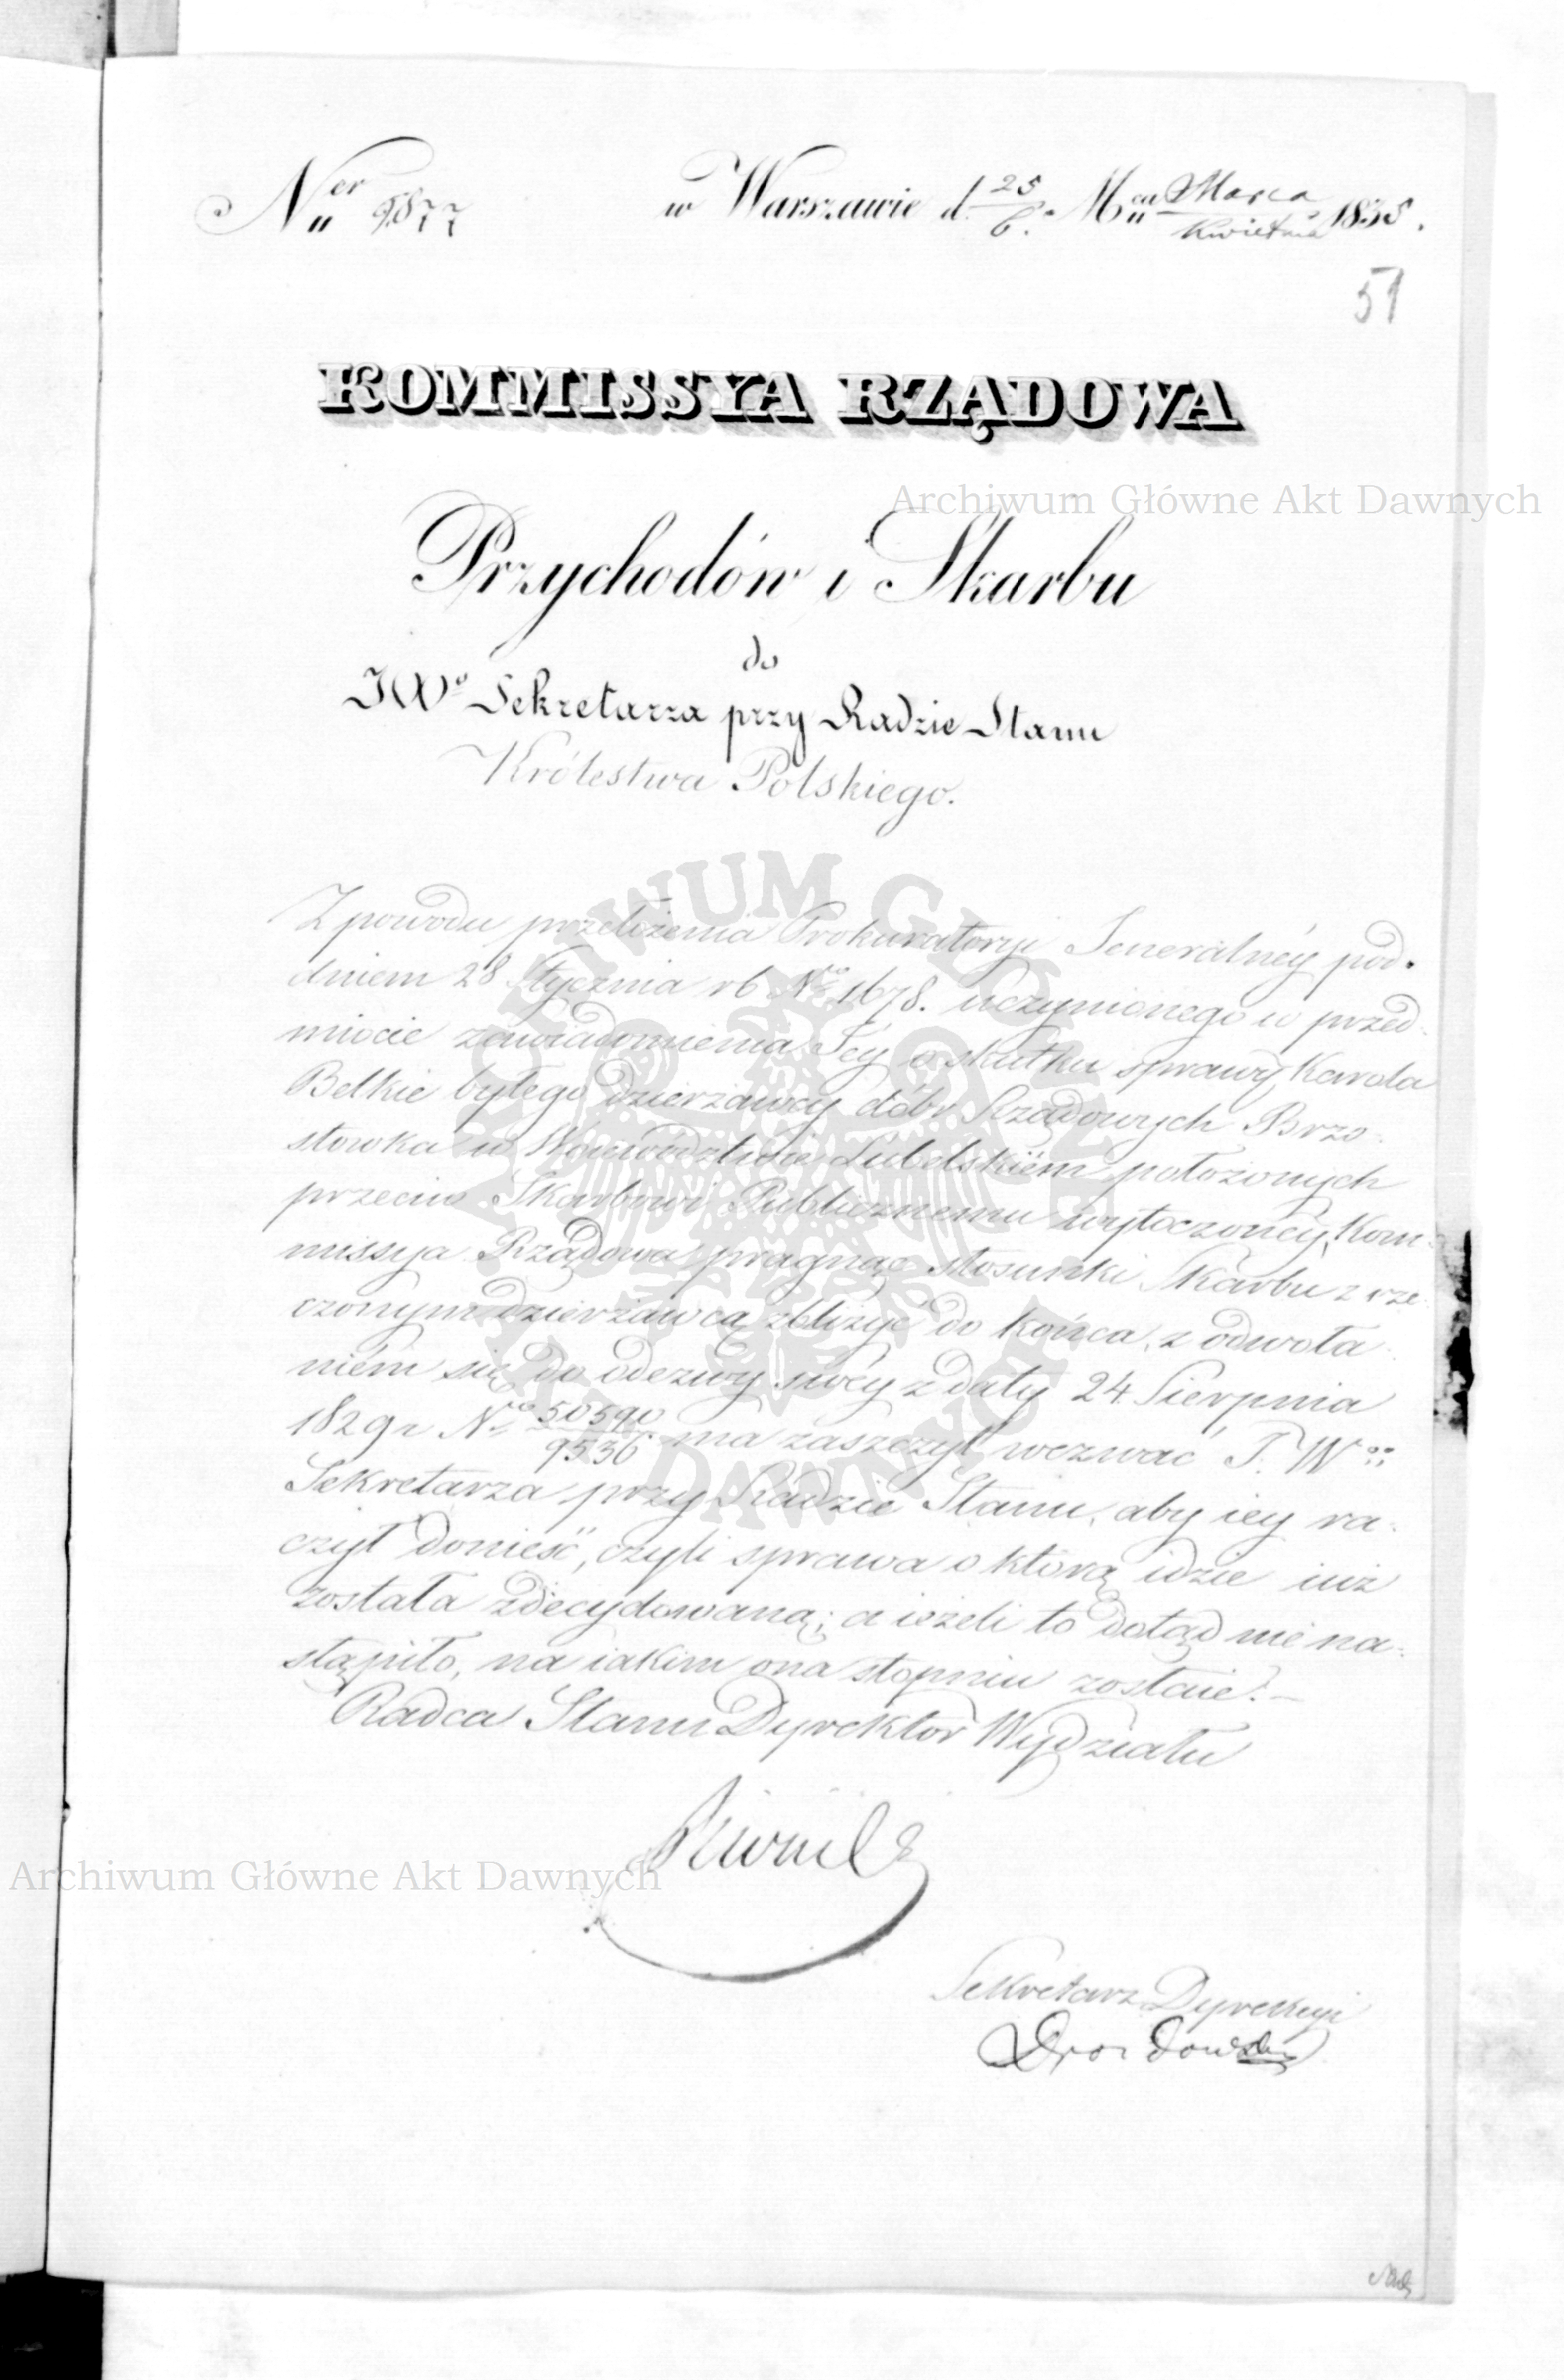 Ner 9877 w Warszawie d. 25/6. Mca Marca/Kwietnia 1835.
51
KOMMISSYA RZĄDOWA
Archiwum Główne Akt Dawnych
Przychodów i Skarbu
do
JWo Sekretarza przy Radzie Stanu
Królestwa Polskiego.
Z powodu przełożenia Prokuratoryi Jeneralnéy pod
dniem 28 Stycznia rb No 1678. uczynionego w przed-
miocie zawiadomienia Jéy o skutku sprawy Karola
Belkie byłego dzierżawcy dóbr Rządowych Brzo-
stowka w Woiewództwie Lubelskiém położonych
przeciw Skarbowi Publicznemu wytoczonéy, Kom-
missya Rządowa pragnąc stosunki Skarbu z rze-
czonym dzierżawcą zbliżyć do końca, z odwoła-
niém się do odezwy swéy z daty 24 Sierpnia
1829r No 50590/9536 ma zaszczyt wezwać J. W
Sekretarza przy Radzie Stanu, aby iey ra-
czył donieść, czyli sprawa o którą idzie iuż
została zdecydowaną; a ieżeli to dotąd nie na-
stąpiło, na iakim ona stopniu zostaie?—
Radca Stanu Dyrektor Wydziału
Archiwum Główne Akt Dawnych
Sekretarz Dyrekcyi
Drozdowski
ARCHIWUM GŁÓWNE AKT DAWNYCH